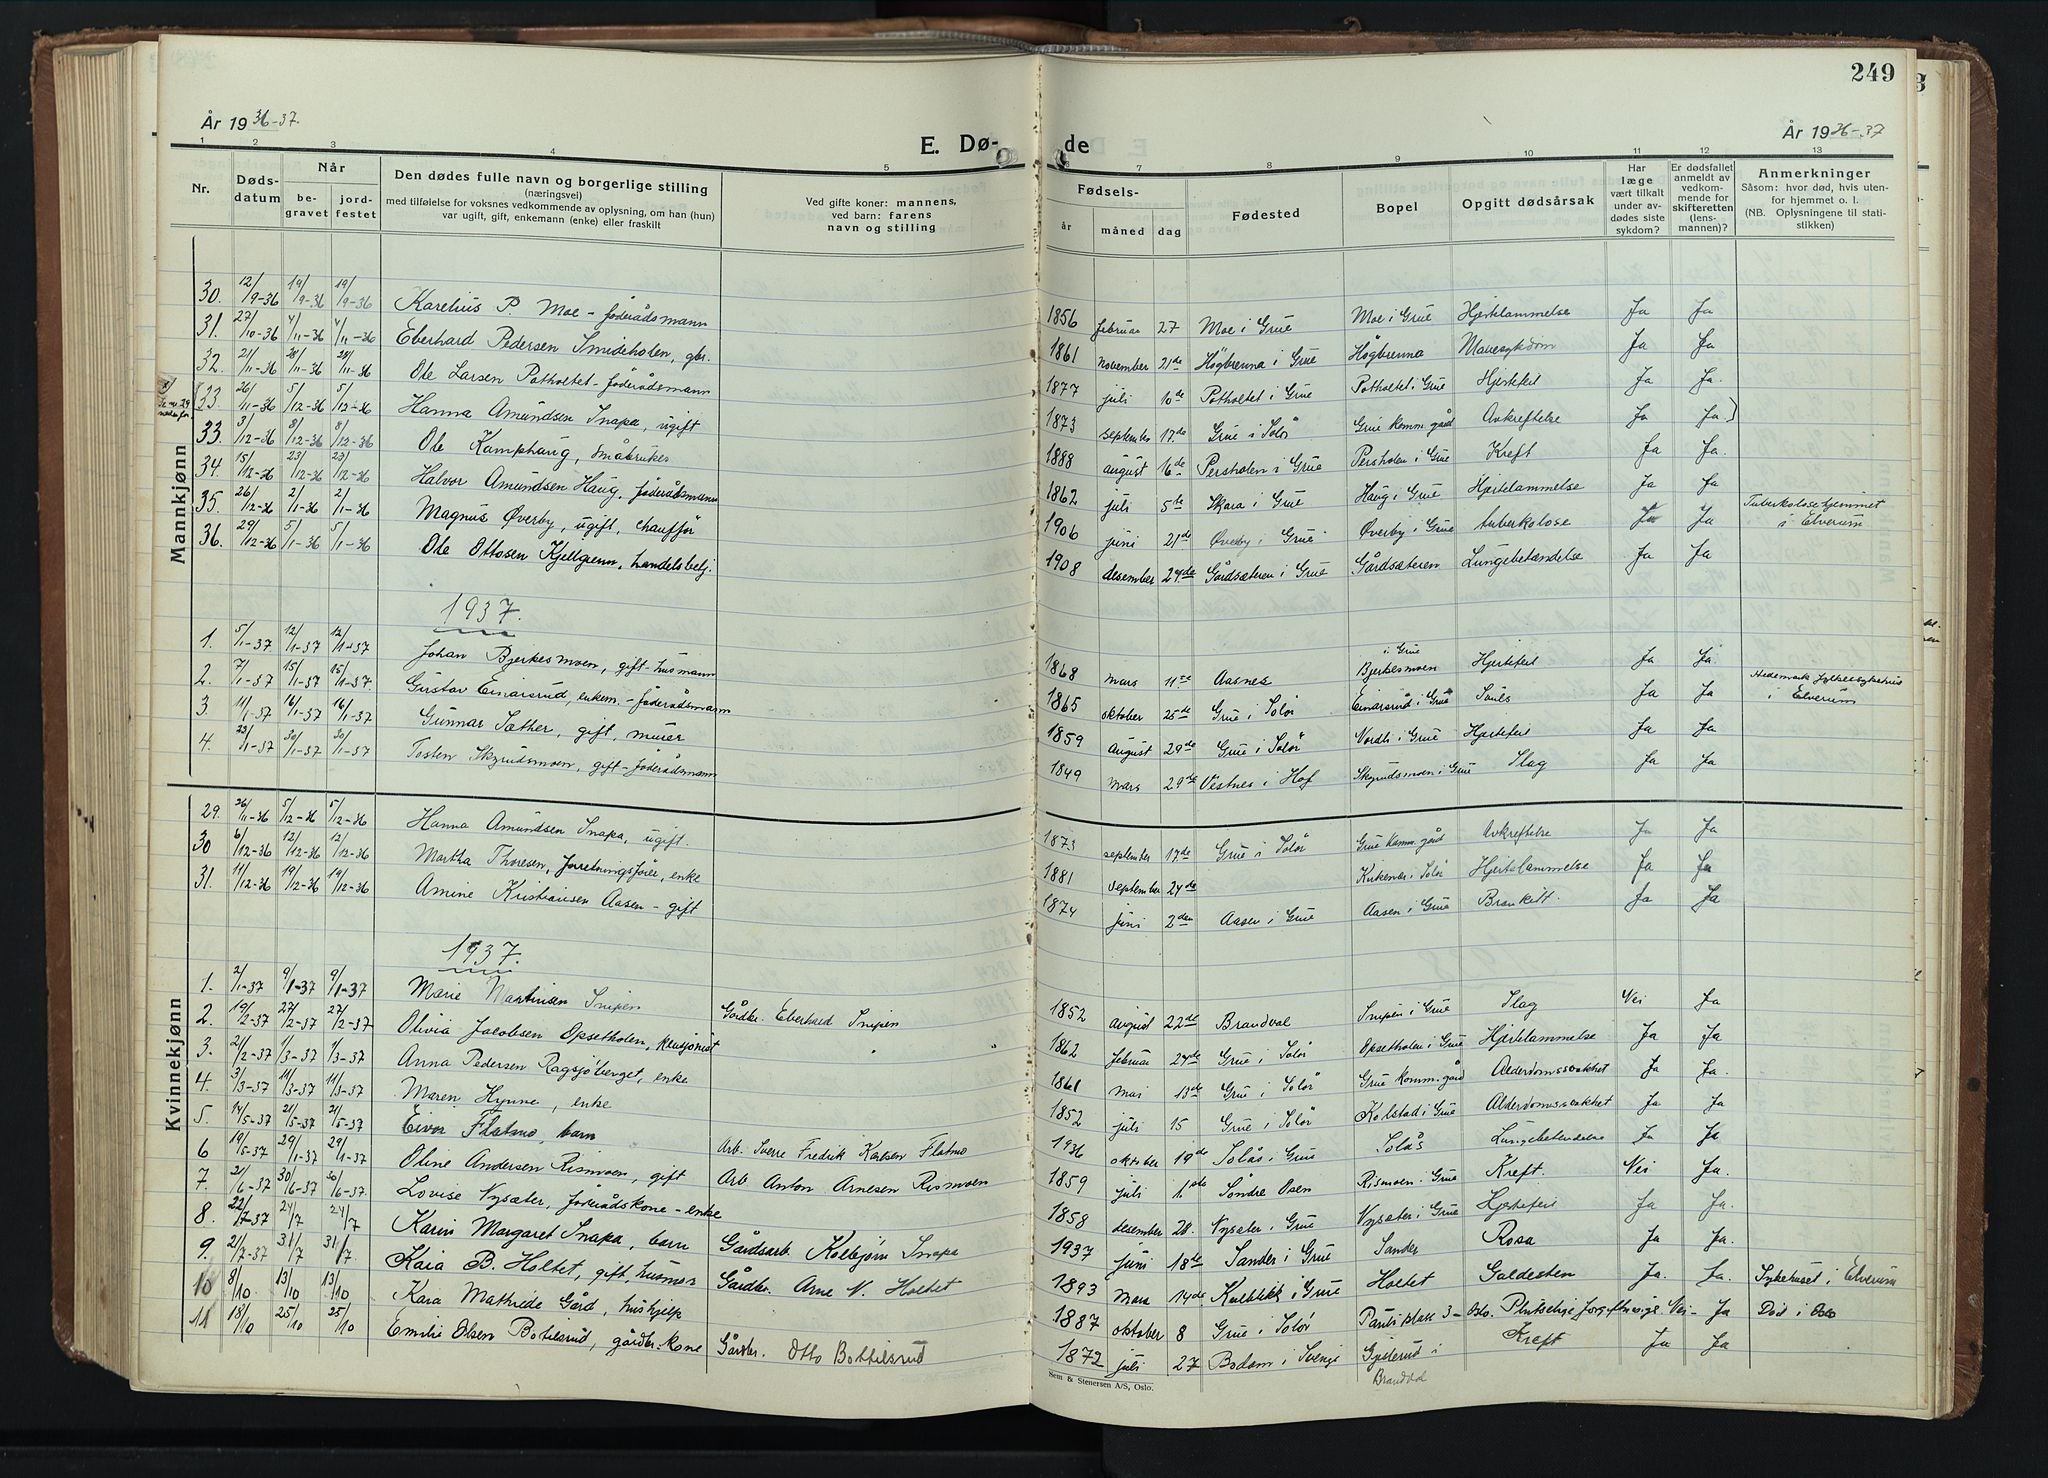 249
År 1936-37.
E. Dø-
de
År 1936-37
1 2 3 4 5 6 7 8 9 10 11 12 13
Nr.
Dødsdatum
Når
begravet
jordfestet
Den dødes fulle navn og borgerlige stilling
(næringsvei)
med tilføielse for voksnes vedkommende av oplysning, om han (hun)
var ugift, gift, enkemann (enke) eller fraskilt
Ved gifte koner: mannens,
ved barn: farens
navn og stilling
Fødsels-
år måned dag
Fødested
Bopel
Opgitt dødsårsak
Har
læge
vært tilkalt
under avdødes
siste
sykdom?
Er dødsfallet
anmeldt av
vedkommende
for
skifteretten
(lensmannen)?
Anmerkninger
Såsom: hvor død, hvis utenfor
hjemmet o. l.
(NB. Oplysningene til statistikken)
Mannkjønn
30. 12/9-36 19/9-36 19/9-36 Karelius P. Moe - föderådsmann 1856 februar 27 Moe i Grue Moe i Grue Hjertelammelse Ja Ja
31. 27/10-36 4/11-36 4/11-36 Eberhard Pedersen Smideholen, gbr. 1861 november 21de Högbrenna i Grue Högbrenna Mavesykdom Ja Ja
32. 21/11-36 28/11-36 28/11-36 Ole Larsen Potholtet - föderådsmann 1877 juli 10de Potholtet i Grue Potholtet i Grue Hjertefeil Ja Ja.
33 26/11-36 5/12-36 5/12-36 Hanna Amundsen Snapa, ugift 1873 september 17de Grue i Solör Grue komm. gård Avkreftelse Ja Ja.)
33. 3/12-36 8/12-36 8/12-36 Ole Kamphaug, småbruker 1888 august 16de Persholen i Grue Persholen i Grue Kreft Ja Ja.
34. 15/12-36 23/12-36 23/12-36 Halvor Amundsen Haug, föderådsmann 1862 juli 5te Skara i Grue Haug i Grue Hjertelammelse Ja Ja
35. 26/12-36 2/1-36 2/1-36 Magnus Øverby, ugift, chauffør 1906 juni 21de Øverby i Grue Øverby i Grue tuberkolose Ja Ja Tuberkolosehjemmet i Elverum
36. 29/12-36 5/1-36 5/1-36 Ole Ottosen Kjellgrenn, handelsbetj. 1908 desember 24de Gårdsæteren i Grue Gårdsæteren Lungebetændelse Ja Ja
1937.
1. 5/1-37 12/1-37 12/1-37 Johan Bjerkesmoen, gift - husmann 1868 mars 11te Aasnes Bjerkesmoen i Grue Hjertefeil Ja Ja
2. 7/1-37 15/1-37 15/1-37. Gustav Einarsrud, enkem. - föderådsmann 1865 oktober 25de Grue i Solör Einarsrud i Grue Ja Ja Hedemark fylkessykehus i Elverum
3 11/1-37 16/1-37 16/1-37 Gunnar Sæther, gift, murer 1859 august 29de Grue i Solör Nordli i Grue Hjertefeil Ja Ja
4. 23/1-37 30/1-37 30/1-37 Tosten Skyrudsmoen, gift - föderådsmann 1849 mars 29de Vestnes i Hof Skyrudsmoen i Grue Slag Ja Ja
Kvinnekjønn
29. 26/11-36 5/12-36 5/12-36 Hanna Amundsen Snapa, ugift. 1873 september 17de Grue i Solör Grue komm. gård Avkreftelse Ja Ja
30 6/12-36 12/12-36 12/12-36 Martha Thoresen, forretningsfører, enke 1881 september 24de Kirkenær i Solör Hjertelammelse Ja Ja
31. 14/12-36 19/12-36 19/12-36 Amine Kristiansen Aasen - gift 1874 juni 2den Aasen i Grue Aasen i Grue Bronkitt. Ja Ja
1937.
1. 2/1-37 9/1-37 9/1-37 Marie Martinsen Snipen Gårdbr. Eberhard Snipen 1852 august 22de Brandval Snipen i Grue Slag Nei Ja
2. 19/2-37 27/2-37 27/2-37 Olivia Jacobsen Opsetholen, pensjonist 1862 februar 24de Grue i Solör Opsetholen i Grue Hjertelammelse Ja Ja
3. 21/2-37 1/3-37 1/3-37 Anna Pedersen Ragsjöberget, enke 1861 mai 13de Grue i Solör Grue komm. gård Alderdomssvakhet Ja Ja.
4. 3/3-37 11/3-37 11/3-37 Maren Hynne, enke 1852 juli 15 Grue i Solör Kolstad i Grue Alderdomssvakhet Ja Ja
5. 14/5-37 21/5-37 21/5-37 Eivor Flatmo, barn Arb. Sverre Fredrik Karlsen Flatmo 1936 oktober 19de Solås i Grue Solås Lungebetendelse Ja Ja
6 19/5-37 29/1-37 29/1-37 Oline Andersen Rismoen, gift Arb. Anton Arnesen Rismoen 1859 juli 1ste Søndre Osen Rismoen i Grue Kreft. Nei Ja.
7. 21/6-37 30/6-37 30/6-37. Lovise Nysæter, föderådskone - enke 1858 desember 28. Nysæter i Grue Nysæter i Grue Hjertefeil Ja Ja.
8. 22/7-37 24/7 24/7 Karin Margaret Snapa, barn Gårdsarb. Kolbjørn Snapa 1937 juni 18de Sander i Grue Sander Rosa Ja Ja.
9. 21/7-37 31/7 31/7 Kaia B. Holtet, gift, husmor Gårdbr. Arne N. Holtet 1893 mars 14de Kulblikk i Grue Holtet Galdesten Ja. Ja. Sykehuset i Elverum
10 8/10 13/10 13/10 Kara Mathilde Gård, hushjelp 1887 oktober 8 Grue i Solör 3 - Oslo. Plutselige forgiftning Nei - Ja Død i Oslo
11 18/10 25/10 25/10 Emilie Olsen Botilsrud, gårdbr. kone Gårdbr. Otto Bottilsrud 1872 juli 27 Bodam i Sverige Gjeterud i Brandval Kreft Ja Ja
Sem & Stenersen A/S, Oslo.